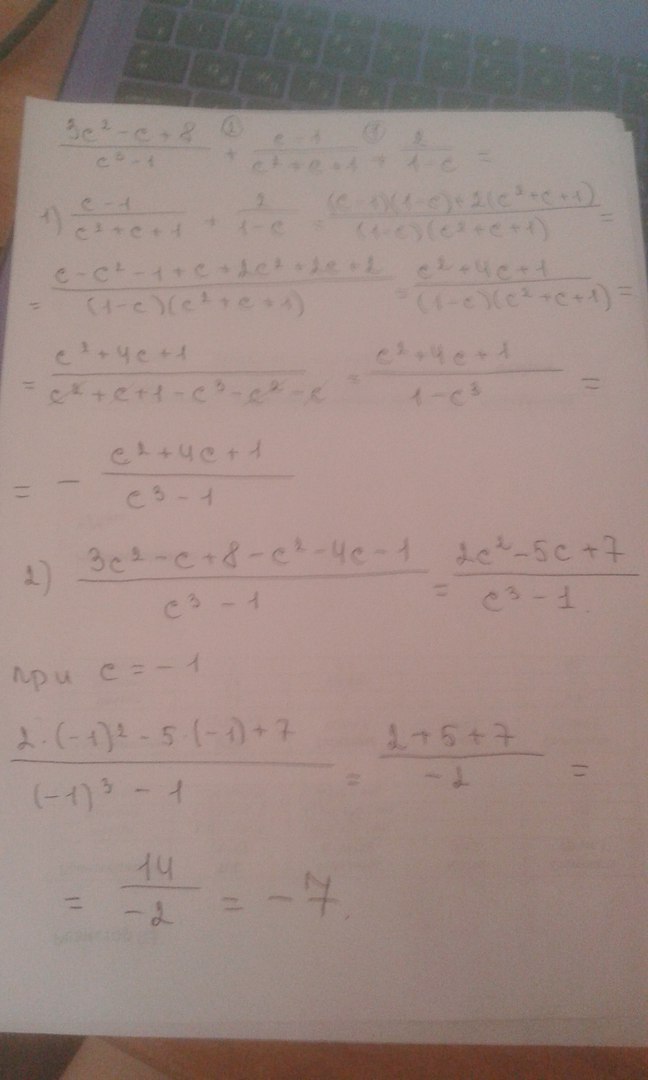 (3c² - c + 8)/(c³ - 1) + ② (c - 1)/(c² + c + 1) + ① 2/(1 - c) =
1) (c - 1)/(c² + c + 1) + 2/(1 - c) = ((c - 1)(1 - c) + 2(c² + c + 1))/((1 - c)(c² + c + 1)) =
= (c - c² - 1 + c + 2c² + 2c + 2)/((1 - c)(c² + c + 1)) = (c² + 4c + 1)/((1 - c)(c² + c + 1)) =
= (c² + 4c + 1)/(c² + c + 1 - c³ - c² - c) = (c² + 4c + 1)/(1 - c³) =
= - (c² + 4c + 1)/(c³ - 1)
2) (3c² - c + 8 - c² - 4c - 1)/(c³ - 1) = (2c² - 5c + 7)/(c³ - 1).
при c = -1
(2·(-1)² - 5·(-1) + 7)/((-1)³ - 1) = (2 + 5 + 7)/(-2) =
= 14/(-2) = -7.